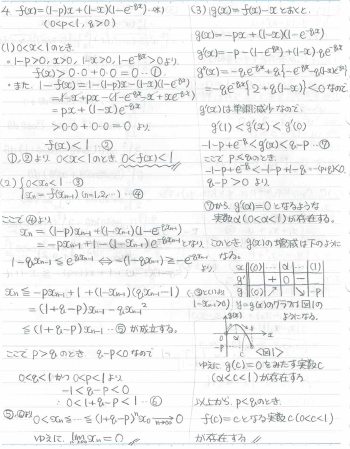 4. f(x)=(1-p)x+(1-x)(1-e^{-qx})
(0<p<1, q>0)
(1) 0<x<1のとき、
・1-p>0, x>0, 1-x>0, 1-e^{-qx}>0より
f(x)>0・0+0・0=0 …①
・また、1-f(x)=1-(1-p)x-(1-x)(1-e^{-qx})
=px+(1-x)e^{-qx}
>0・0+0・0=0 より
f(x)<1 …②
①,②より 0<x<1のとき、0<f(x)<1
(2) {0<x₀<1 …③
xₙ=f(xₙ₋₁) (n=1,2,…) …④
ここで④より
xₙ=(1-p)xₙ₋₁+(1-xₙ₋₁)(1-e^{-qxₙ₋₁})
=-pxₙ₋₁+1-(1-xₙ₋₁)e^{-qxₙ₋₁}となり、
1-qxₙ₋₁≦e^{-qxₙ₋₁}⇔-(1-qxₙ₋₁)≧-e^{-qxₙ₋₁}
より、
xₙ≦-pxₙ₋₁+1+(1-xₙ₋₁)(qxₙ₋₁-1)
=(1+q-p)xₙ₋₁-qxₙ₋₁²
≦(1+q-p)xₙ₋₁ …⑤ が成立する。
ここで p>qのとき、q-p<0なので
0<q<1かつ0<p<1より
-1<q-p<0
∴0<1+q-p<1 …⑥
0<xₙ≦…≦(1+q-p)ⁿx₀→0
ゆえに、lim xₙ=0
(3) g(x)=f(x)-xとおくと、
g(x)=-px+(1-x)(1-e^{-qx})
g'(x)=-p-(1-e^{-qx})+(1-x)・qe^{-qx}
=-qe^{-qx}{2+q(1-x)}<0なので
g'(x)は単調減少なので、
g'(1)<g'(x)<g'(0)
-1-p+e^{-q}<g'(x)<q-p …⑦
ここで p<qのとき、
q-p>0 より、
⑦から、g'(α)=0となるような
実数α(0<α<1)が存在する。
このとき、g(x)の増減は下のように
なる。
x (0) … α … (1)
g' + 0 -
g (0) ↗ ↘ (-p)
y=g(x)のグラフは図1の
ようになる。
<図1>
ゆえに g(c)=0をみたす実数c
(α<c<1)が存在する。
以上から、p<qのとき、
f(c)=cとなる実数c(0<c<1)
が存在する。